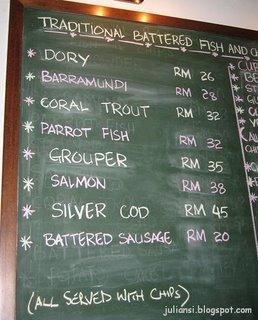 TRADITIONAL BATTERED FISH AND
* DORY RM 26
* BARRAMUNDI RM 28
* CORAL TROUT RM 32
* PARROT FISH RM 32
* GROUPER RM 35
* SALMON RM 38
* SILVER COD RM 45
* BATTERED SAUSAGE RM 20
(ALL SERVED WITH CHIPS)
juliansi.blogspot.com